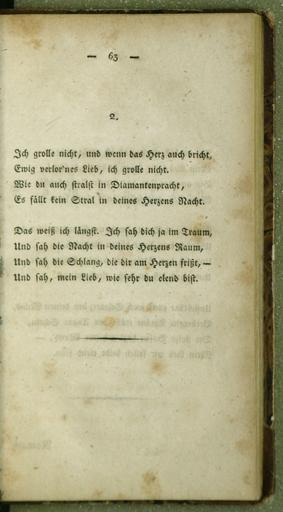 — 63 —
2.
Ich grolle nicht, und wenn das Herz auch bricht,
Ewig verlor'nes Lieb, ich grolle nicht.
Wie du auch stralst in Diamantenpracht,
Es fällt kein Stral in deines Herzens Nacht.
Das weiß ich längst. Ich sah dich ja im Traum,
Und sah die Nacht in deines Herzens Raum,
Und sah die Schlang, die dir am Herzen frißt, —
Und sah, mein Lieb, wie sehr du elend bist.